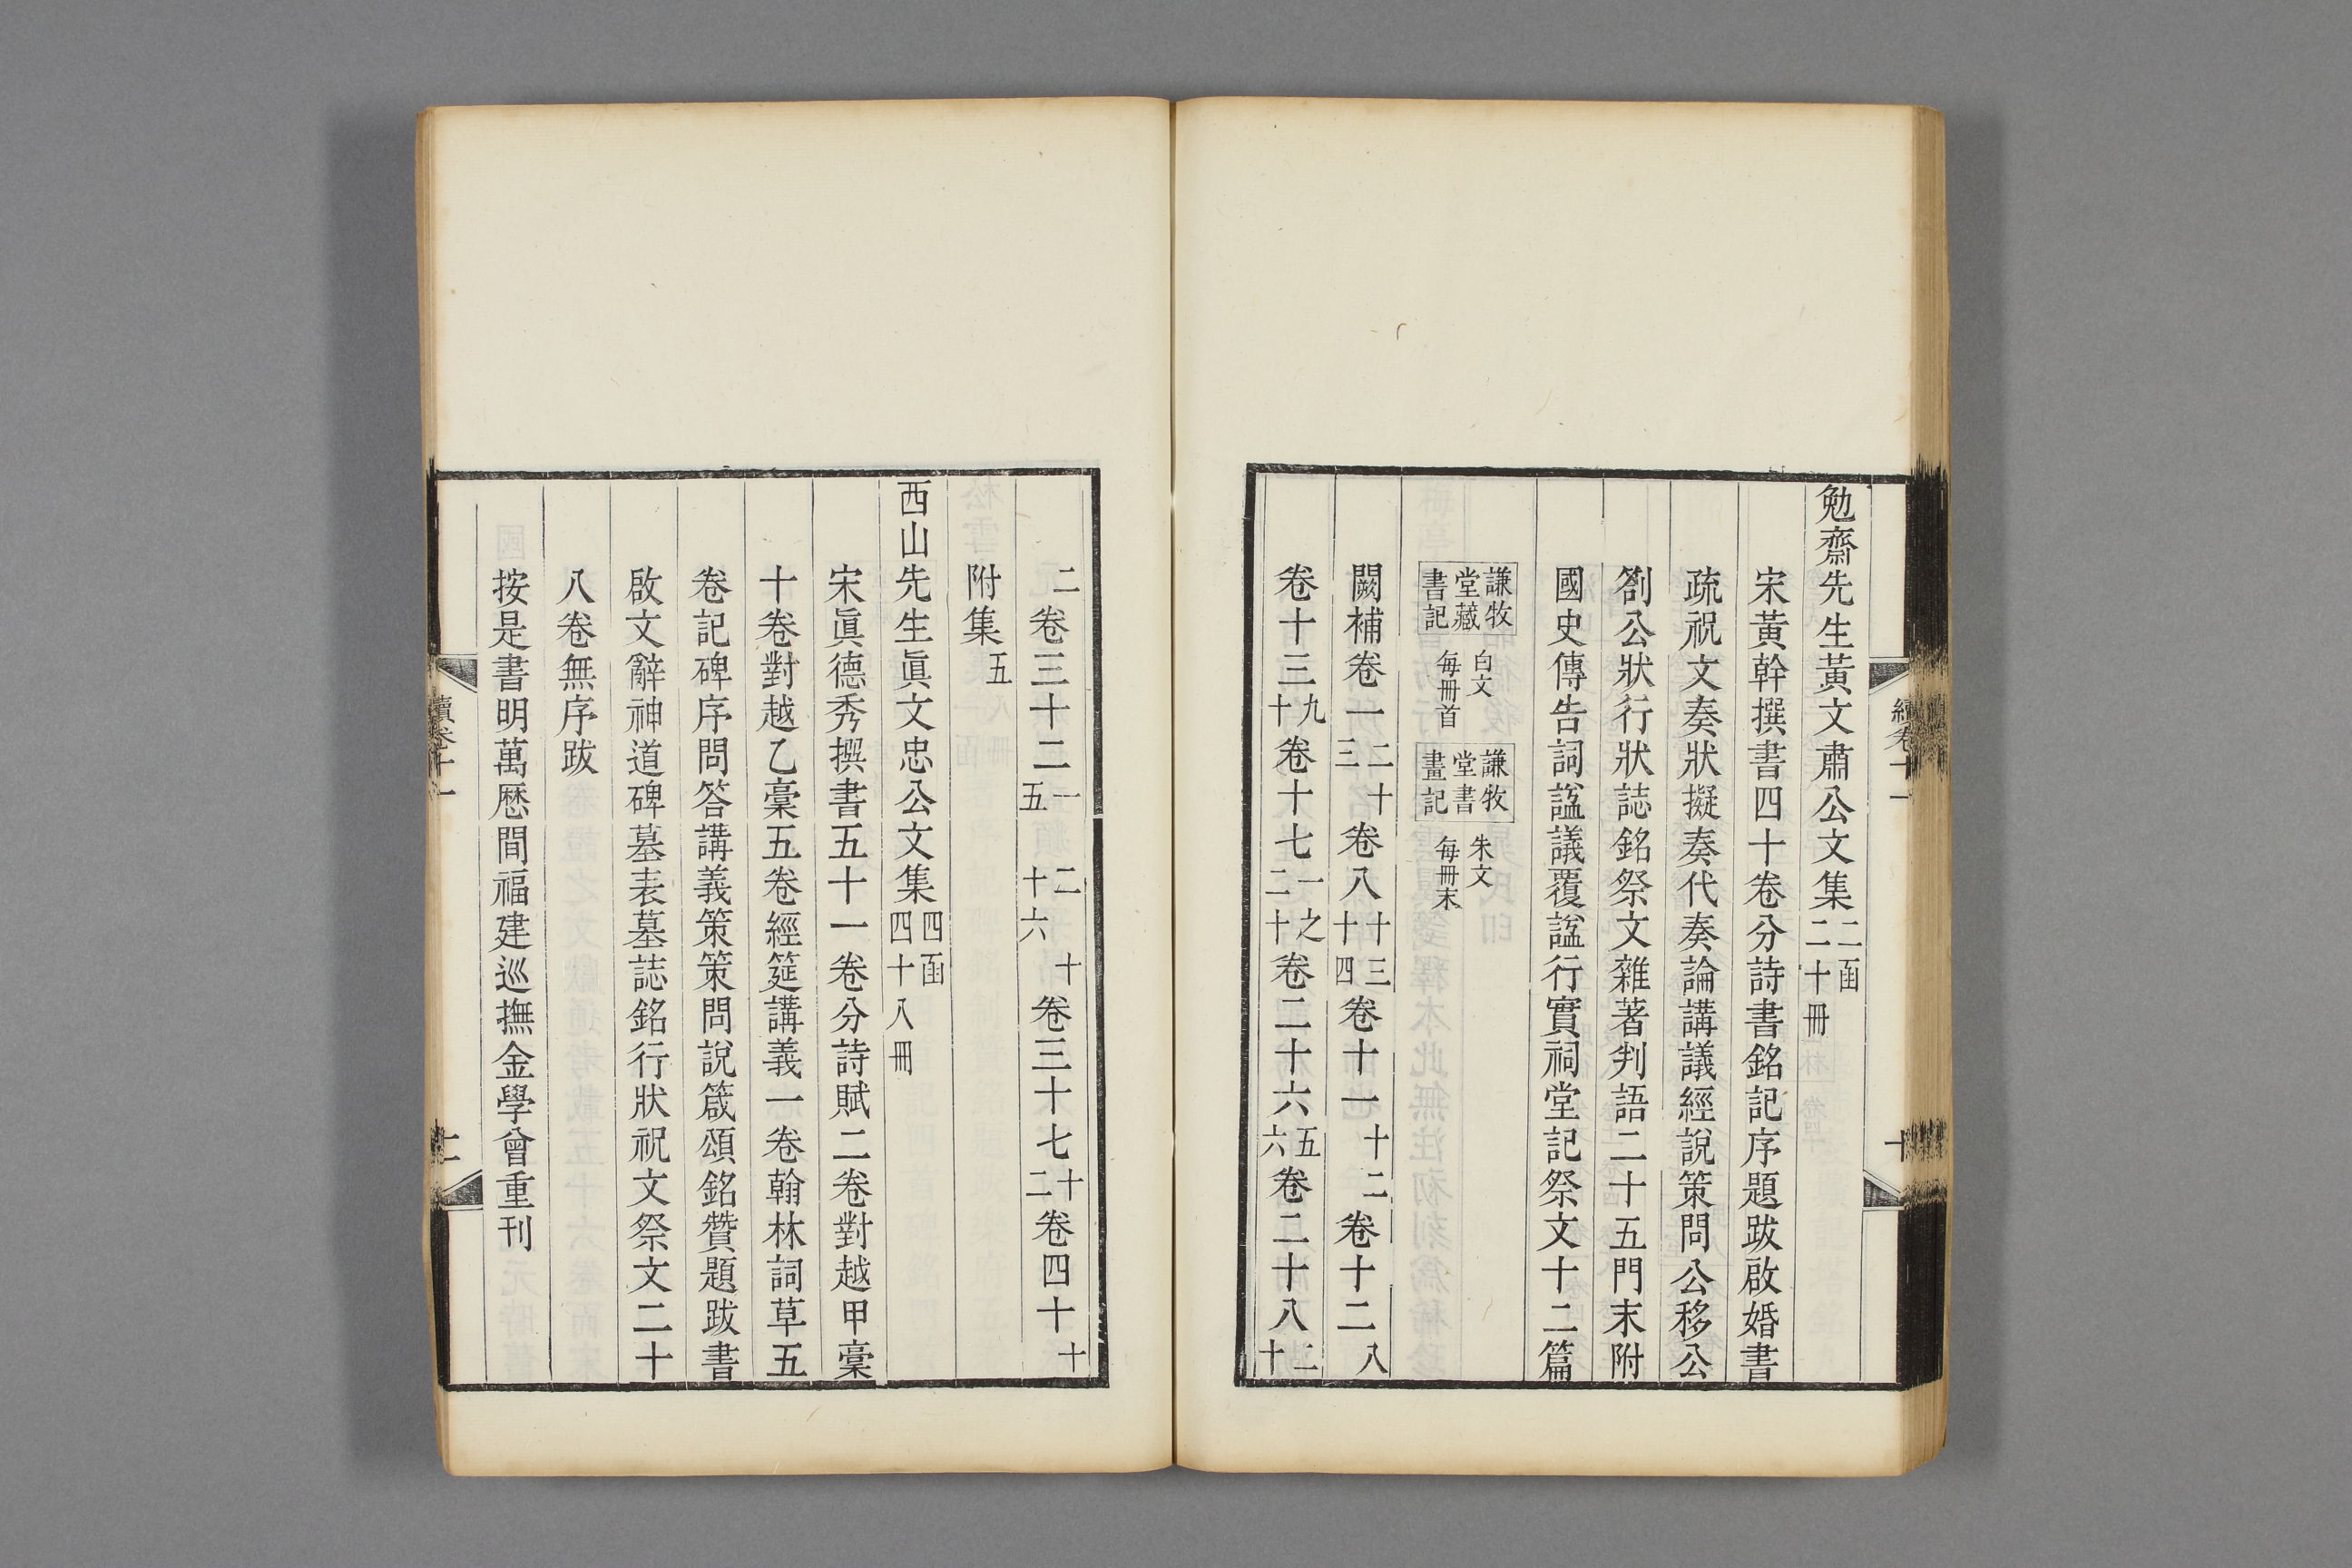 勉齋先生黃文肅公文集二函二十冊
宋黃幹撰書四十卷分詩書銘記序題跋啟婚書
疏祝文奏狀擬奏代奏論講議經說策問公移公
劄公狀行狀誌銘祭文雜著判語二十五門末附
國史傳告詞諡議覆諡行實祠堂記祭文十二篇
謙牧堂藏書記 白文每冊首 謙牧堂書畫記 朱文每冊末
闕補卷一二十三卷八十三十四卷十一十二卷十二八
卷十三九十卷十七一之二十卷二十六五六卷二十八二十
續卷十一
十
二卷三十二一五二十六十卷三十七十二卷四十十
附集五
西山先生眞文忠公文集四函四十八冊
宋眞德秀撰書五十一卷分詩賦二卷對越甲稾
十卷對越乙稾五卷經筵講義一卷翰林詞草五
卷記碑序問答講義策策問說箴頌銘贊題跋書
啟文辭神道碑墓表墓誌銘行狀祝文祭文二十
八卷無序跋
按是書明萬厯間福建巡撫金學曾重刊
續卷十一